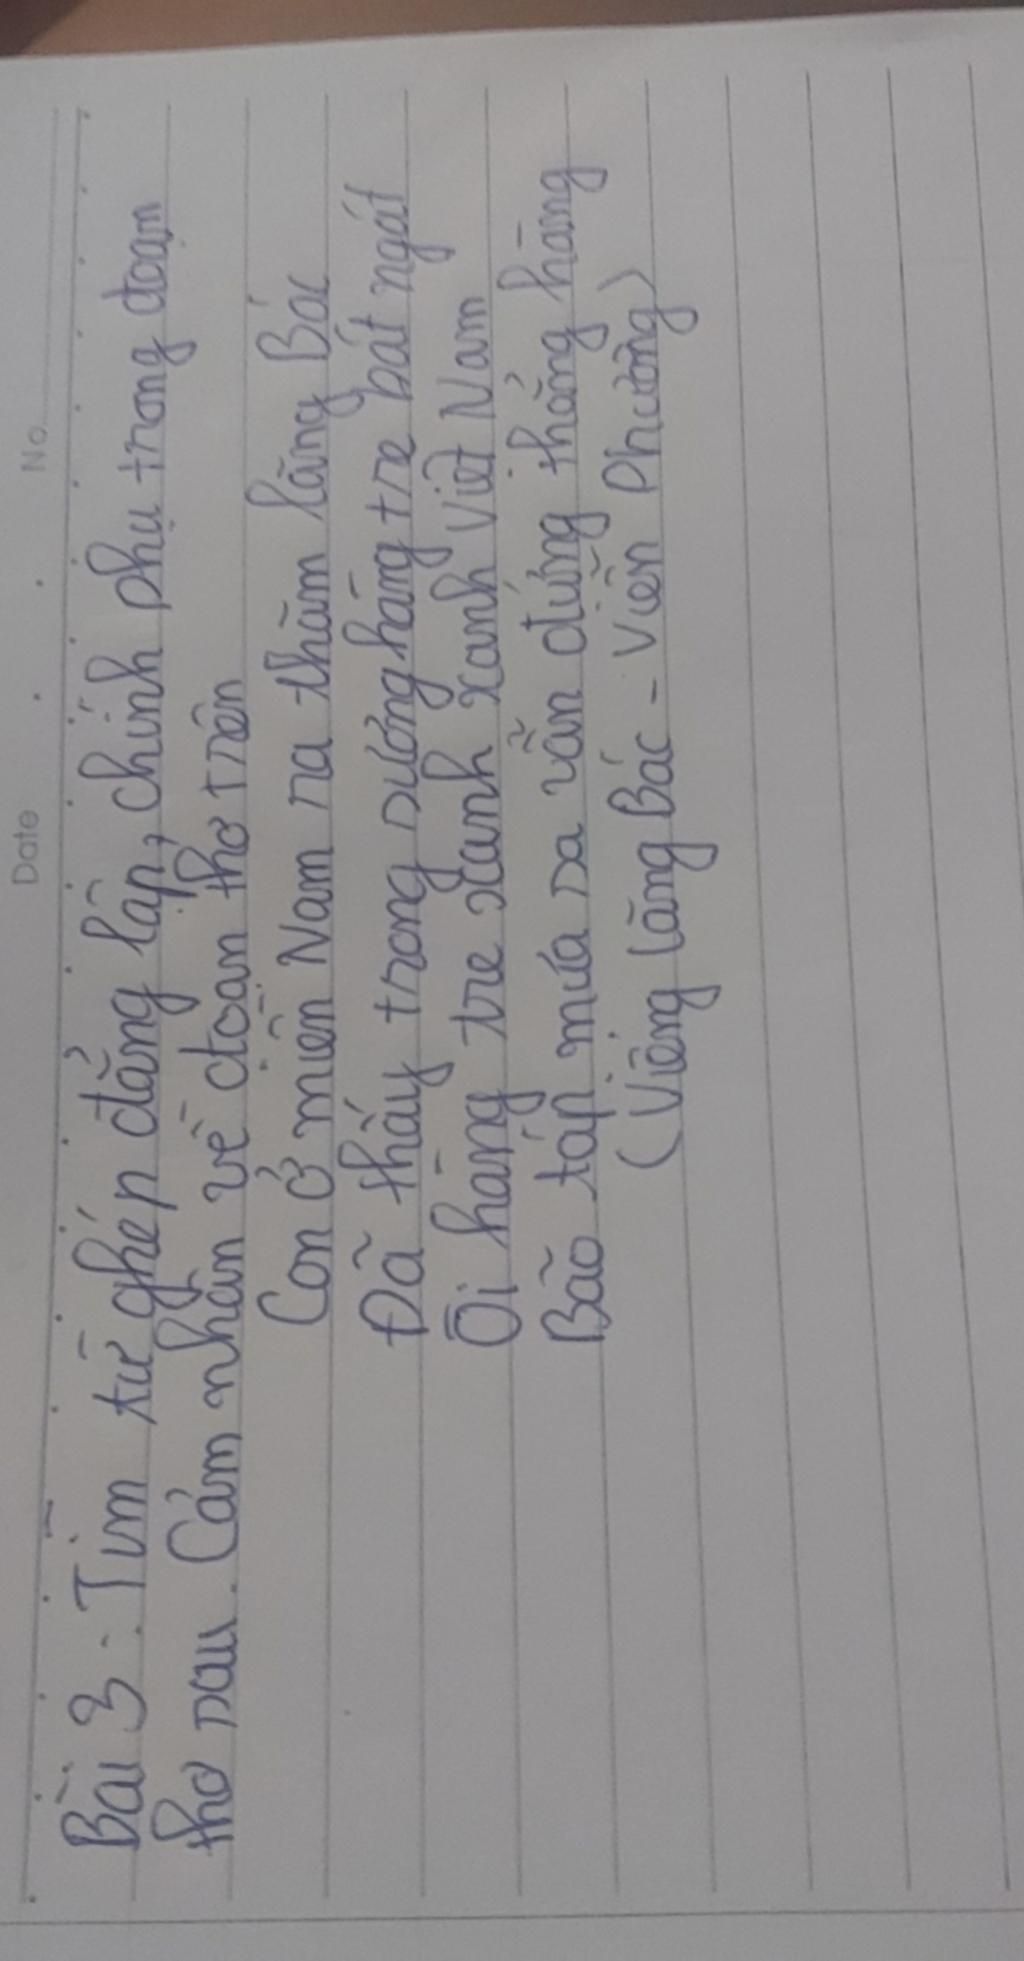 Date No.
Bài 3: Tìm từ ghép đẳng lập, chính phụ trong đoạn
thơ sau. Cảm nhận về đoạn thơ trên
Con ở miền Nam ra thăm lăng Bác
Đã thấy trong sương hàng tre bát ngát
Ôi hàng tre xanh xanh Việt Nam
Bão táp mưa sa vẫn đứng thẳng hàng
(Viếng lăng Bác - Viễn Phương)